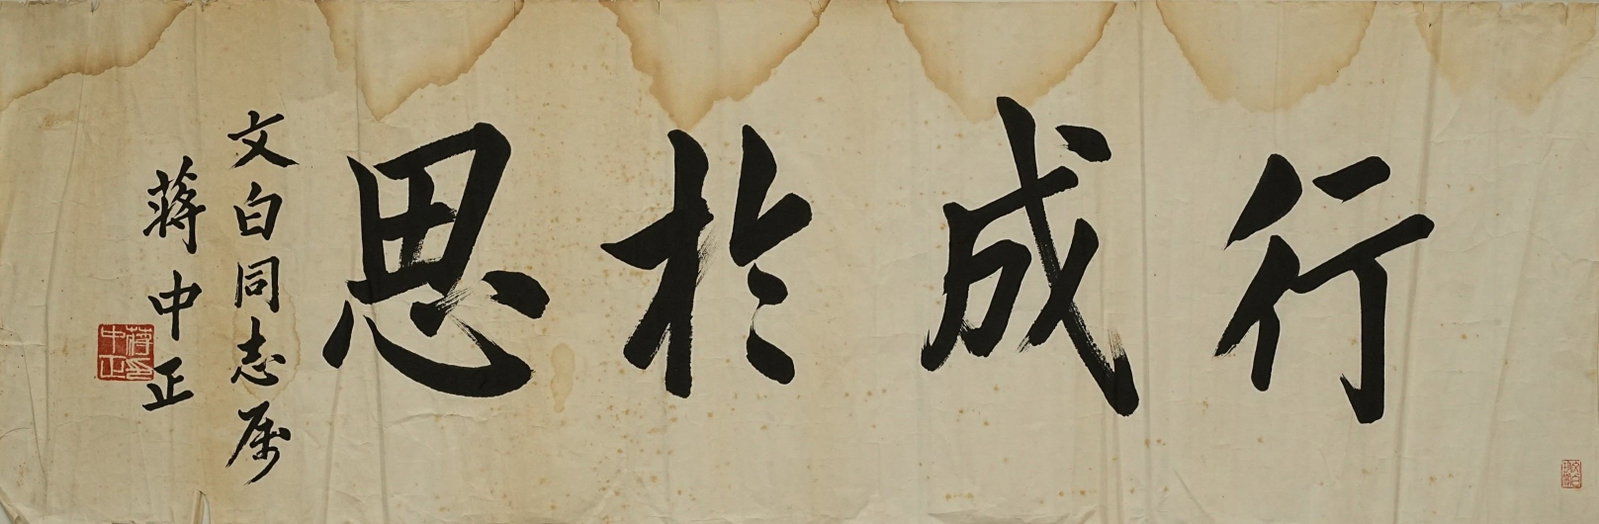 行成於思
文白同志属
蔣中正
蔣中正印